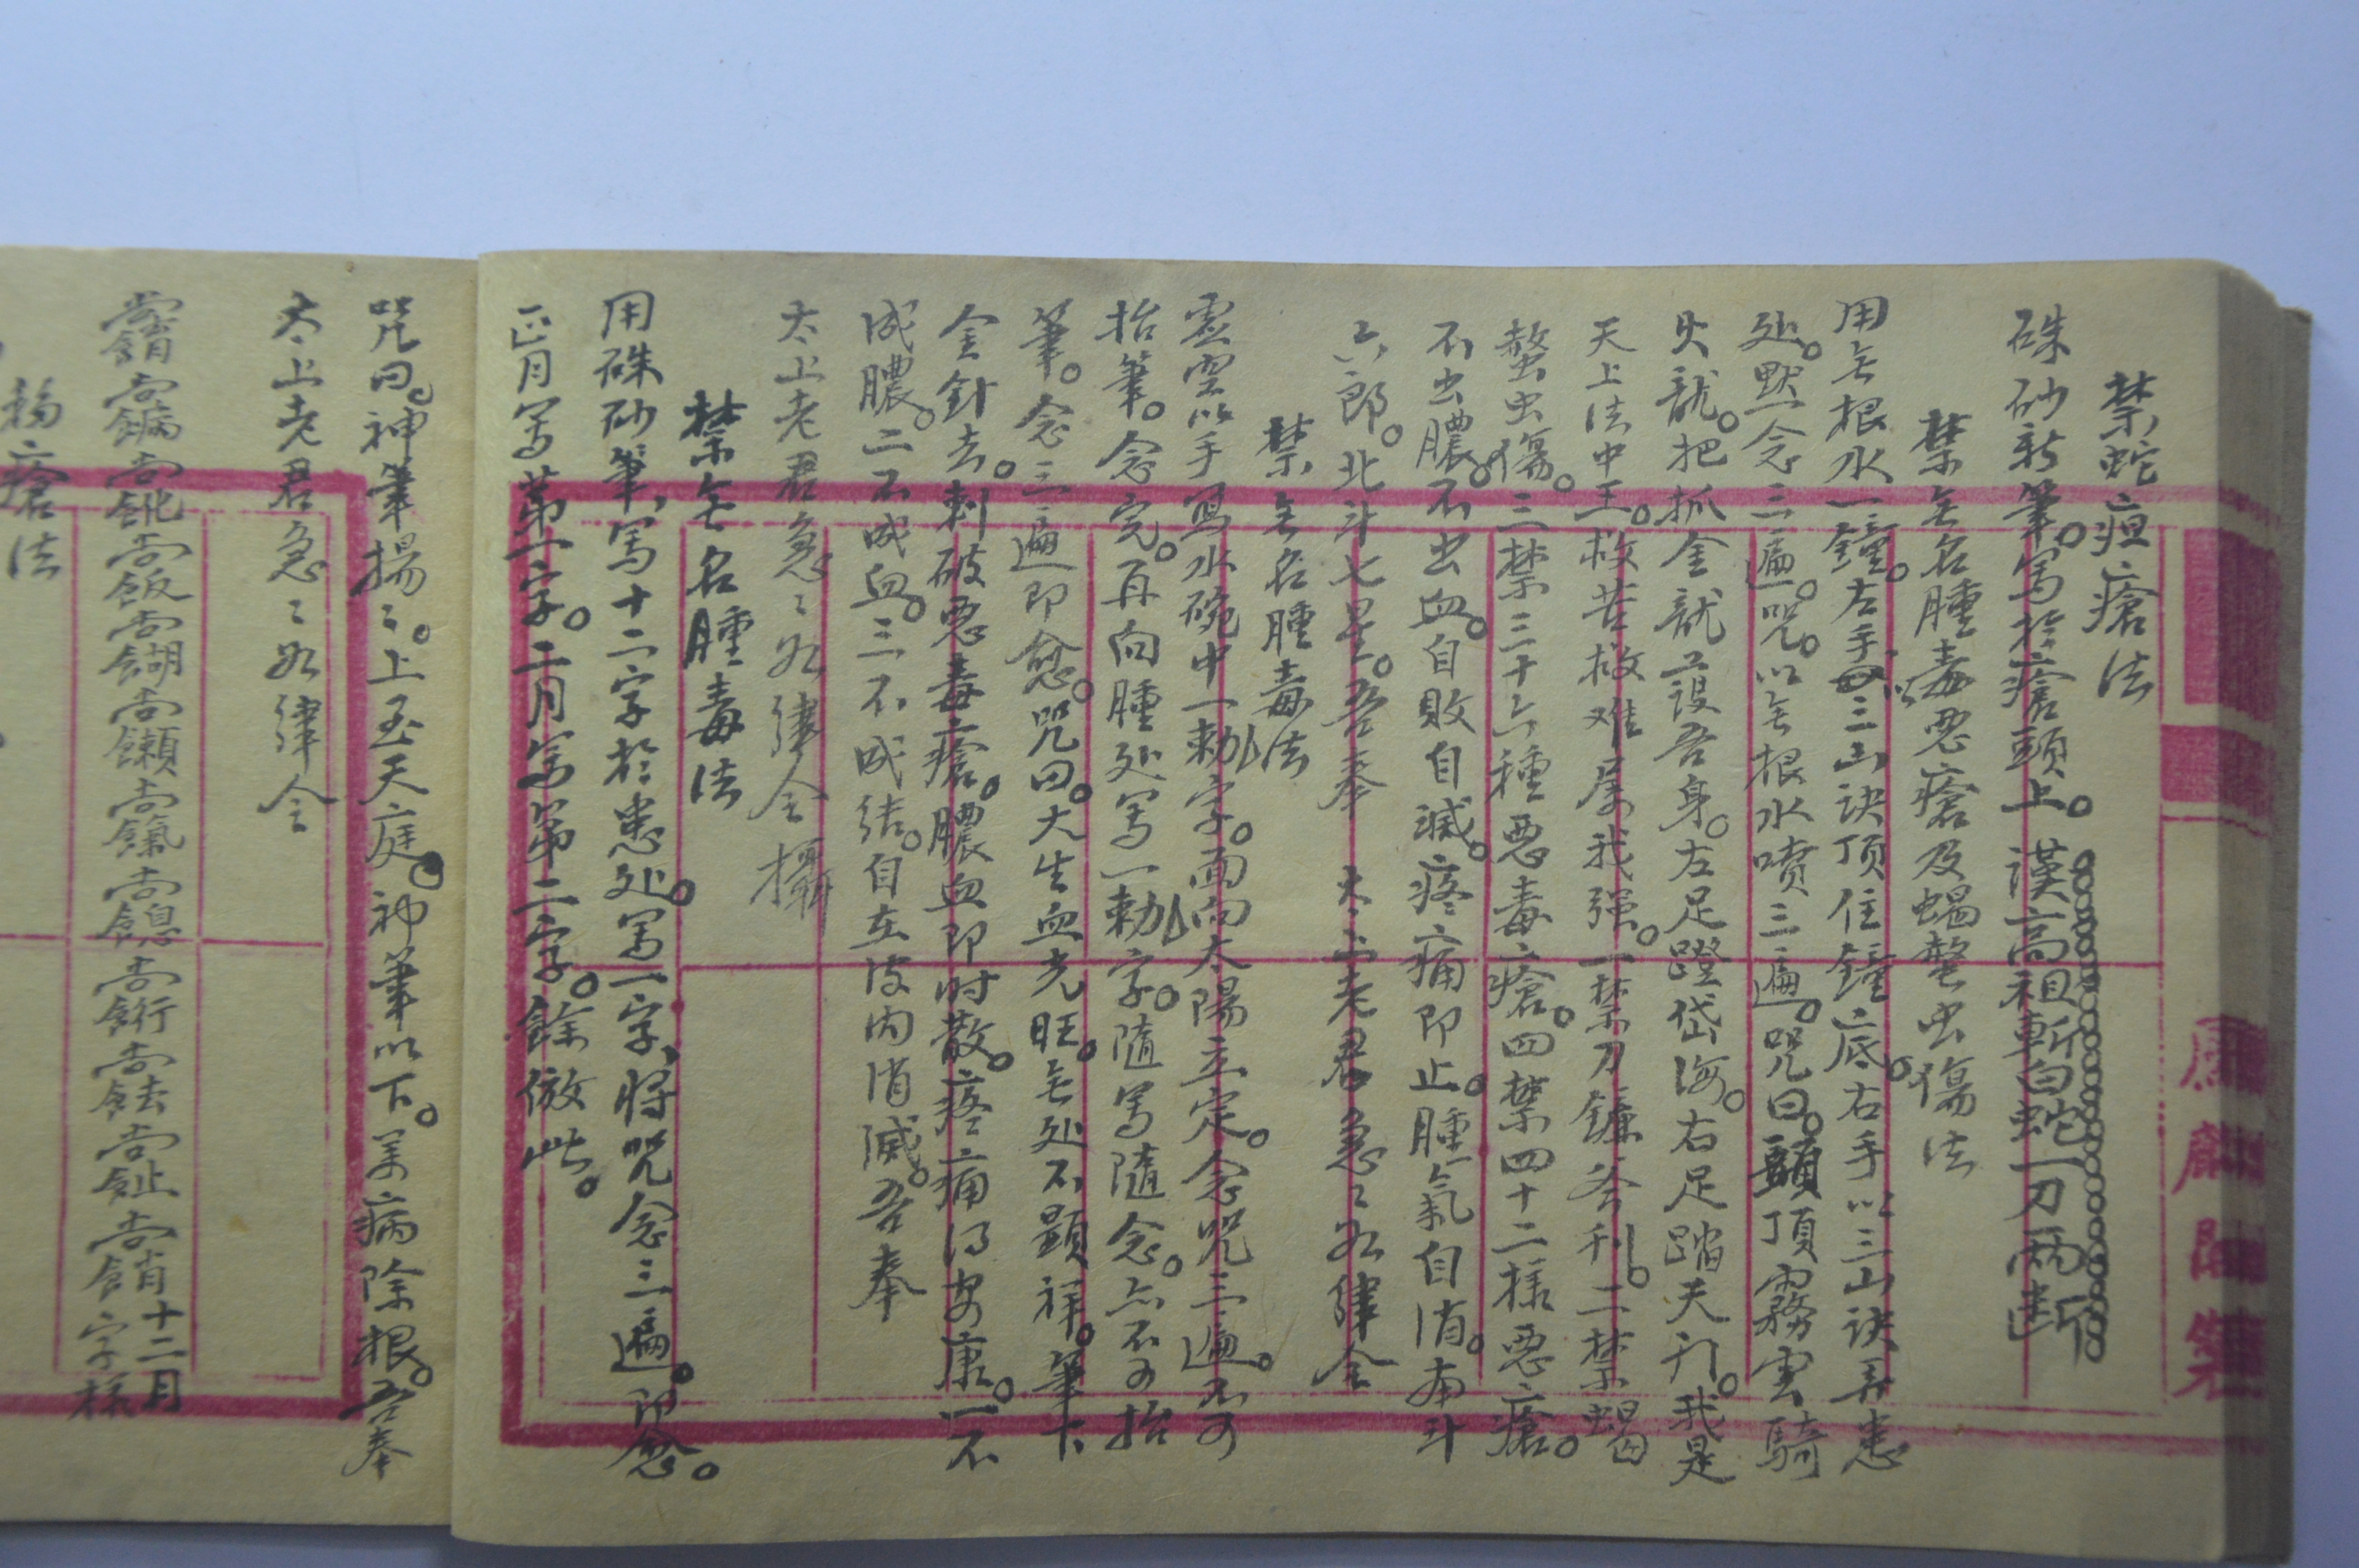 禁蛇疸瘡法
硃砂新筆。寫於瘡頭上。漢高祖斬白蛇一刀兩断
禁无名腫毒惡瘡及蝎螫虫傷法
用无根水一鐘。左手以三山訣頂住鐘底。右手以三山訣弄患
处。默念三遍。咒。以无根水噴三遍。咒曰。頭頂霧雲騎
火龍。把抓金龍護吾身。左足蹬岱海。右足踏天门。我是
天上法中王。救苦救难属我强。一禁刀鐮斧利。二禁蝎
螫虫傷。三禁三十六種惡毒瘡。四禁四十二樣惡瘡。
不出膿。不出血。自敗自滅。疼痛即止。腫氣自消。南斗
六郎。北斗七星。吾奉 太上老君急〻如律令
禁无名腫毒法
虛空以手寫水碗中一勅字。面向太陽立定。念咒三遍。不可
抬筆。念完。再向腫处寫一勅字。隨寫隨念。亦不可抬
筆。念三遍即愈。咒曰。大生血光旺。无处不顯祥。筆下
金針去。刺破惡毒瘡。膿血即时散。疼痛得安康。一不
成膿。二不成血。三不成結。自在皮内消滅。吾奉
太上老君急〻如律令 攝
禁无名腫毒法
用硃砂筆、寫十二字於患处。寫一字、将咒念三遍。即愈。
正月寫第一字。二月寫第二字。餘倣此。
咒曰。神筆揚〻。上至天庭。神筆以下。万病除根。吾奉
太上老君急〻如律令
十二月
字樣
瘡法